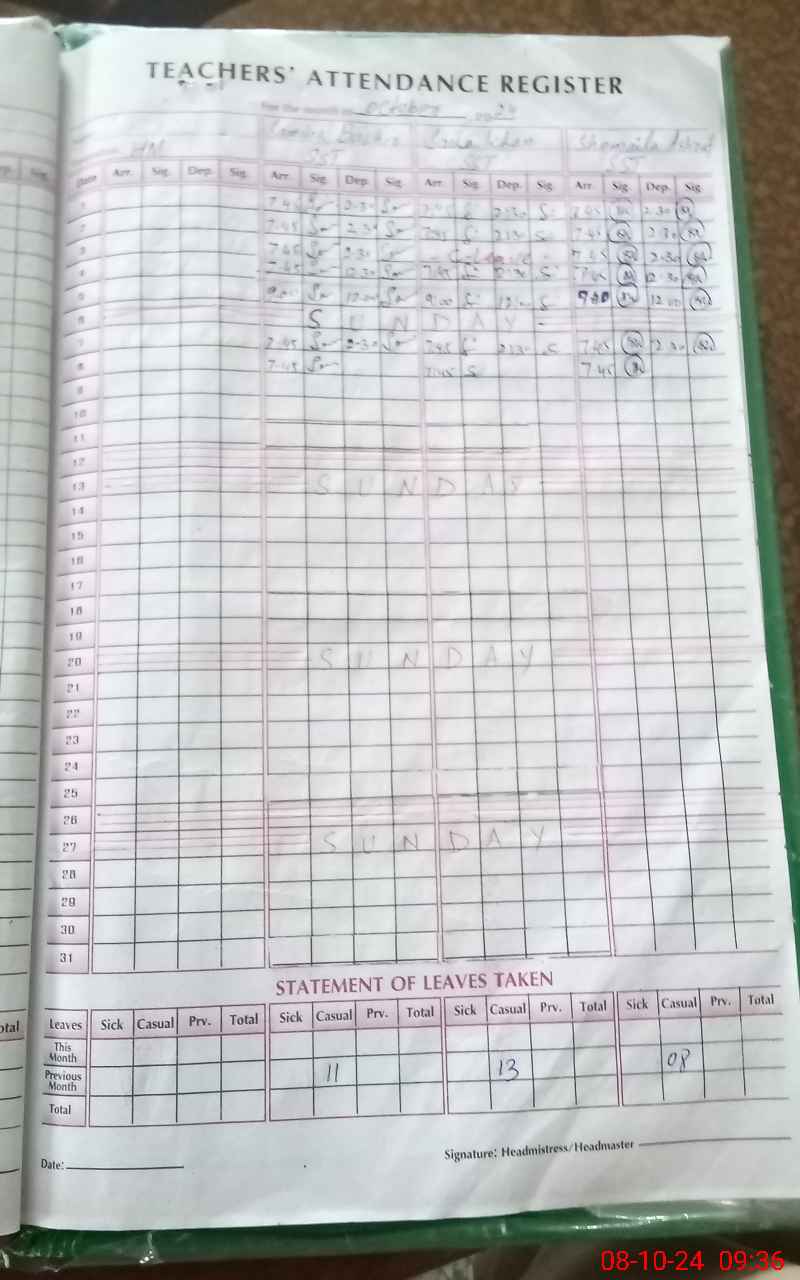 TEACHERS' ATTENDANCE REGISTER
For the month of October 2024
HM
SST SST Shomaila SST
Date Arr. Sig. Dep. Sig. Arr. Sig. Dep. Sig. Arr. Sig. Dep. Sig. Arr. Sig. Dep. Sig.
1 7.45 2.30 7.45 2.30 7.45 2.30
2 7.45 2.30 7.45 2.30 7.45 2.30
3 7.45 2.30 7.45 2.30
4 7.45 12.30 7.45 12.30 7.45 12.30
5 9.00 12.00 9.00 12.00 9.00 12.00
6 SUNDAY
7 7.45 2.30 7.45 2.30 7.45 2.30
8 7.45 7.45 7.45
9
10
11
12
13 SUNDAY
14
15
16
17
18
19
20 SUNDAY
21
22
23
24
25
26
27 SUNDAY
28
29
30
31
STATEMENT OF LEAVES TAKEN
Leaves Sick Casual Prv. Total Sick Casual Prv. Total Sick Casual Prv. Total Sick Casual Prv. Total
This Month
Previous Month 11 13 08
Total
Date:
Signature: Headmistress/Headmaster
08-10-24 09:36